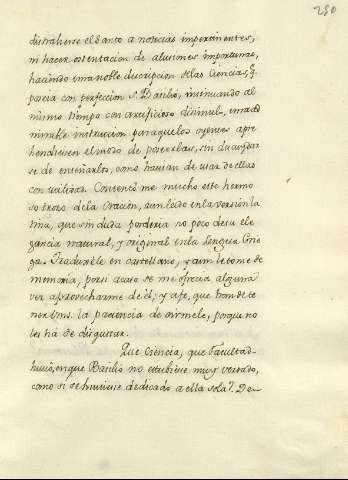 250
distraherse el Santo a noticias impertinentes,
ni hacer ostentacion de alusiones importunas,
haciendo una noble descripcion de las Ciencias, q.e
poseia con perfeccion S. Basilio, insinuando al
mismo tiempo con artificioso disimulo, una ad
mirable instruccion para que los oyentes apre
hendiesen el modo de poseerlas, sin descuydar
se de enseñarles, como havian de usar de ellas
con utilidad. Contentò me mucho este hermo
so trozo de la Oracion, aun leido en la version la
tina, que sin duda perderia no poco de su ele
gancia natural, y original en la Lengua Grie
ga. Traduxele en castellano, y aun le tome de
memoria, por si acaso se me ofrecia alguna
vez aprovecharme de èl; y a fe, que han de te
ner Vms. la paciencia de oirmele, porque no
les hà de disgustar.
Que Ciencia, que Facultad
huvo, en que Basilio no estubiese muy versado,
como si se huviese dedicado a ella sola? De-